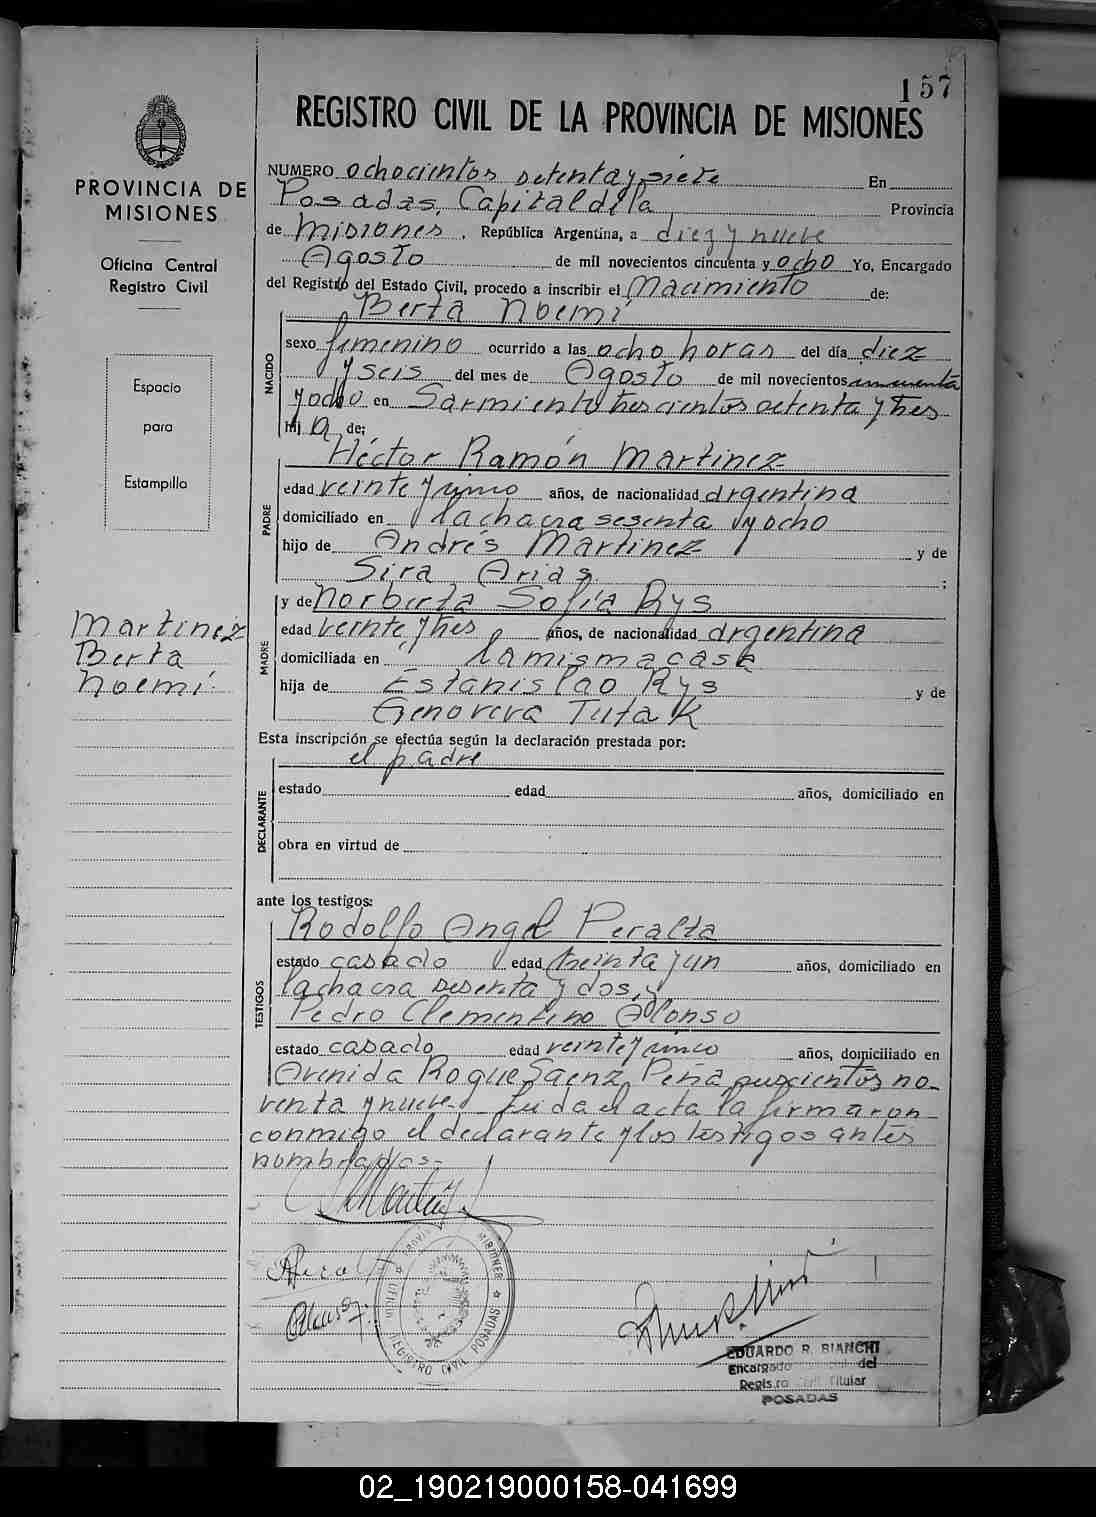 157
REGISTRO CIVIL DE LA PROVINCIA DE MISIONES
PROVINCIA DE
MISIONES
Oficina Central
Registro Civil
Espacio
para
Estampilla
Martinez
Berta
Noemí
NUMERO ochocientos setenta y siete En
Posadas, Capital de la Provincia
de Misiones, República Argentina, a diez y nueve
Agosto de mil novecientos cincuenta y ocho Yo, Encargado
del Registro del Estado Civil, procedo a inscribir el Nacimiento de:
Berta Noemí
NACIDO
sexo femenino ocurrido a las ocho horas del día diez
y seis del mes de Agosto de mil novecientos cincuenta
y ocho en Sarmiento trescientos setenta y tres
hija de:
Héctor Ramón Martinez
PADRE
edad veinte y cinco años, de nacionalidad argentina
domiciliado en la chacra sesenta y ocho
hijo de Andrés Martinez y de
Sira Arias ;
y de Norberta Sofía Rys
MADRE
edad veinte y tres años, de nacionalidad argentina
domiciliada en la misma casa
hija de Estanislao Rys y de
Genoveva Tutak
Esta inscripción se efectúa según la declaración prestada por:
el padre
DECLARANTE
estado edad años, domiciliado en
obra en virtud de
ante los testigos:
Rodolfo Angel Peralta
TESTIGOS
estado casado edad treinta y un años, domiciliado en
la chacra sesenta y dos, y
Pedro Clementino Alonso
estado casado edad veinte y cinco años, domiciliado en
Avenida Roque Saenz Peña noventa y nueve- Leida el acta la firmaron
conmigo el declarante y los testigos antes
nombrados-
PROVINCIA MISIONES
OFICINA REGISTRO CIVIL POSADAS
EDUARDO R. BIANCHI
Encargado del
Registro Titular
POSADAS
02_190219000158-041699